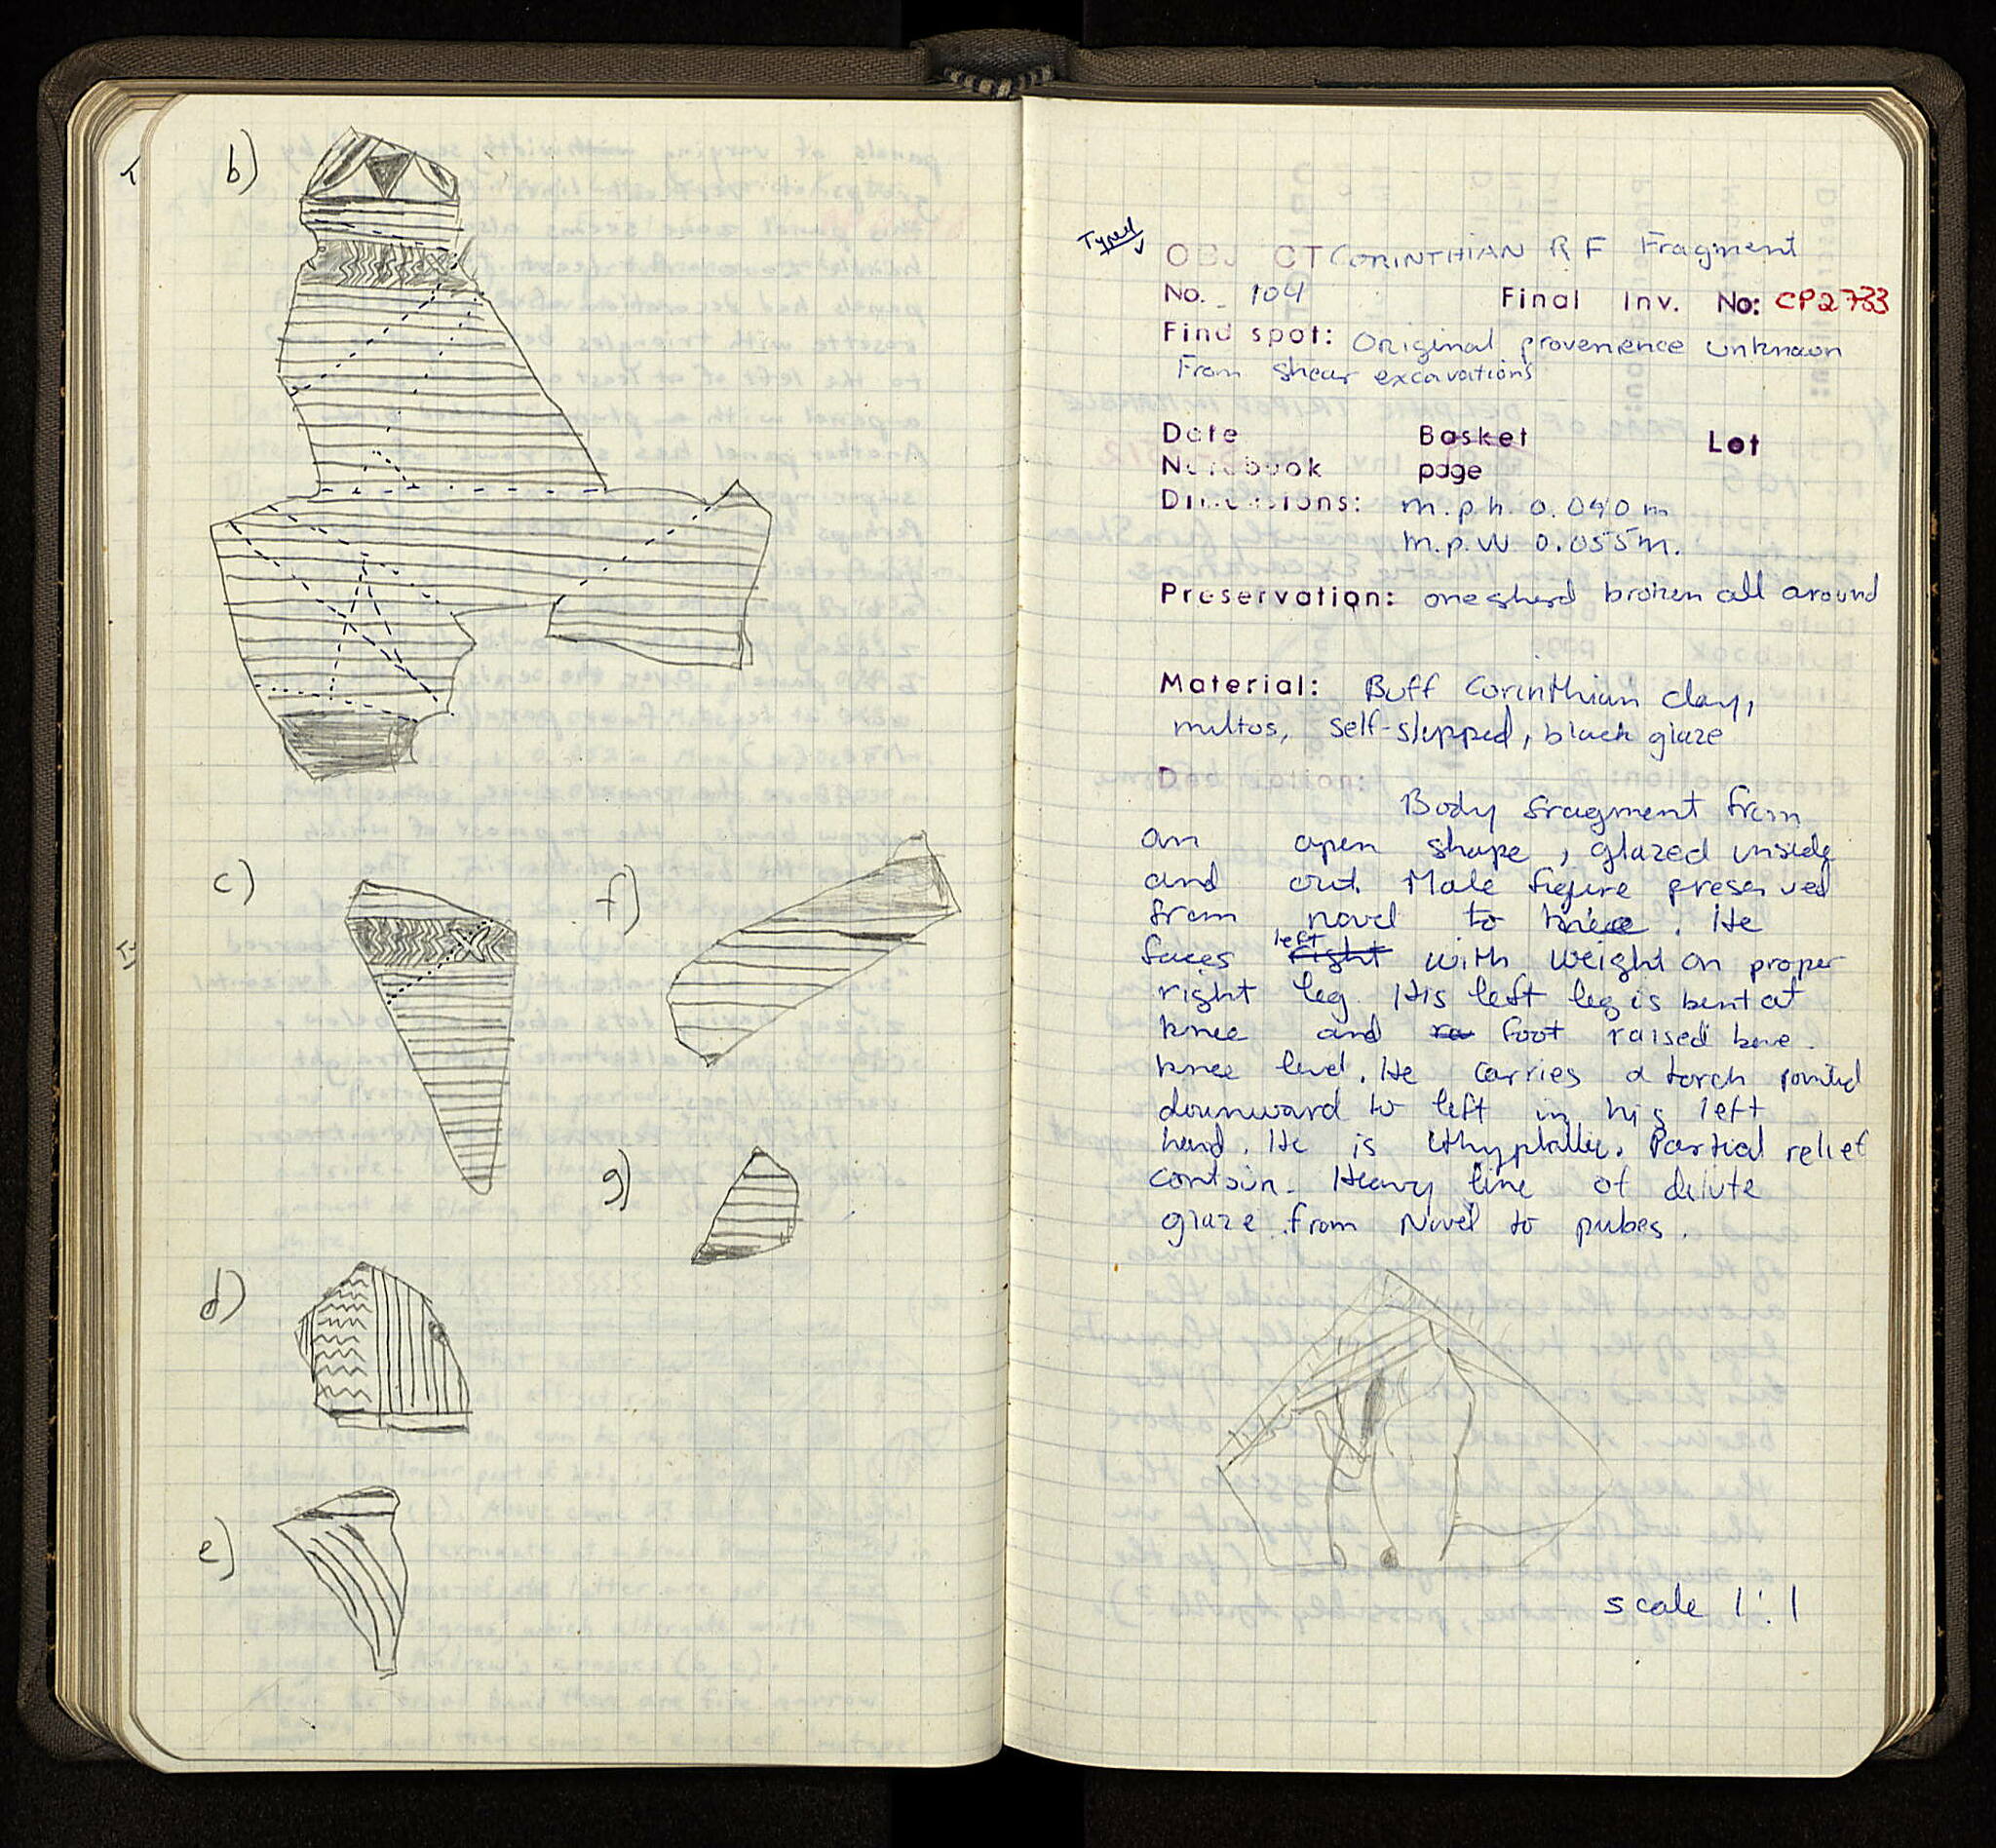 b)
c)
f)
g)
d)
e)
Typed
OBJ CT CORINTHIAN R F Fragment
No. 104 Final Inv. No: CP2783
Find spot: Original provenience unknown
From Shear excavations
Date Basket Lot
Notebook page
Dimensions: m.p.h. 0.040 m
m.p.W 0.055m.
Preservation: one sherd broken all around
Material: Buff Corinthian clay,
miltos, self-slipped, black glaze
Body fragment from
an open shape, glazed inside
and out. Male figure preserved
from navel to knee. He
faces left right with weight on proper
right leg. His left leg is bent at
knee and ra foot raised
knee level. He carries a torch pointed
downward to left in his left
hand. He is ithyphallic. Partial relief
contour. Heavy line of dilute
glaze from Navel to pubes.
scale 1:1